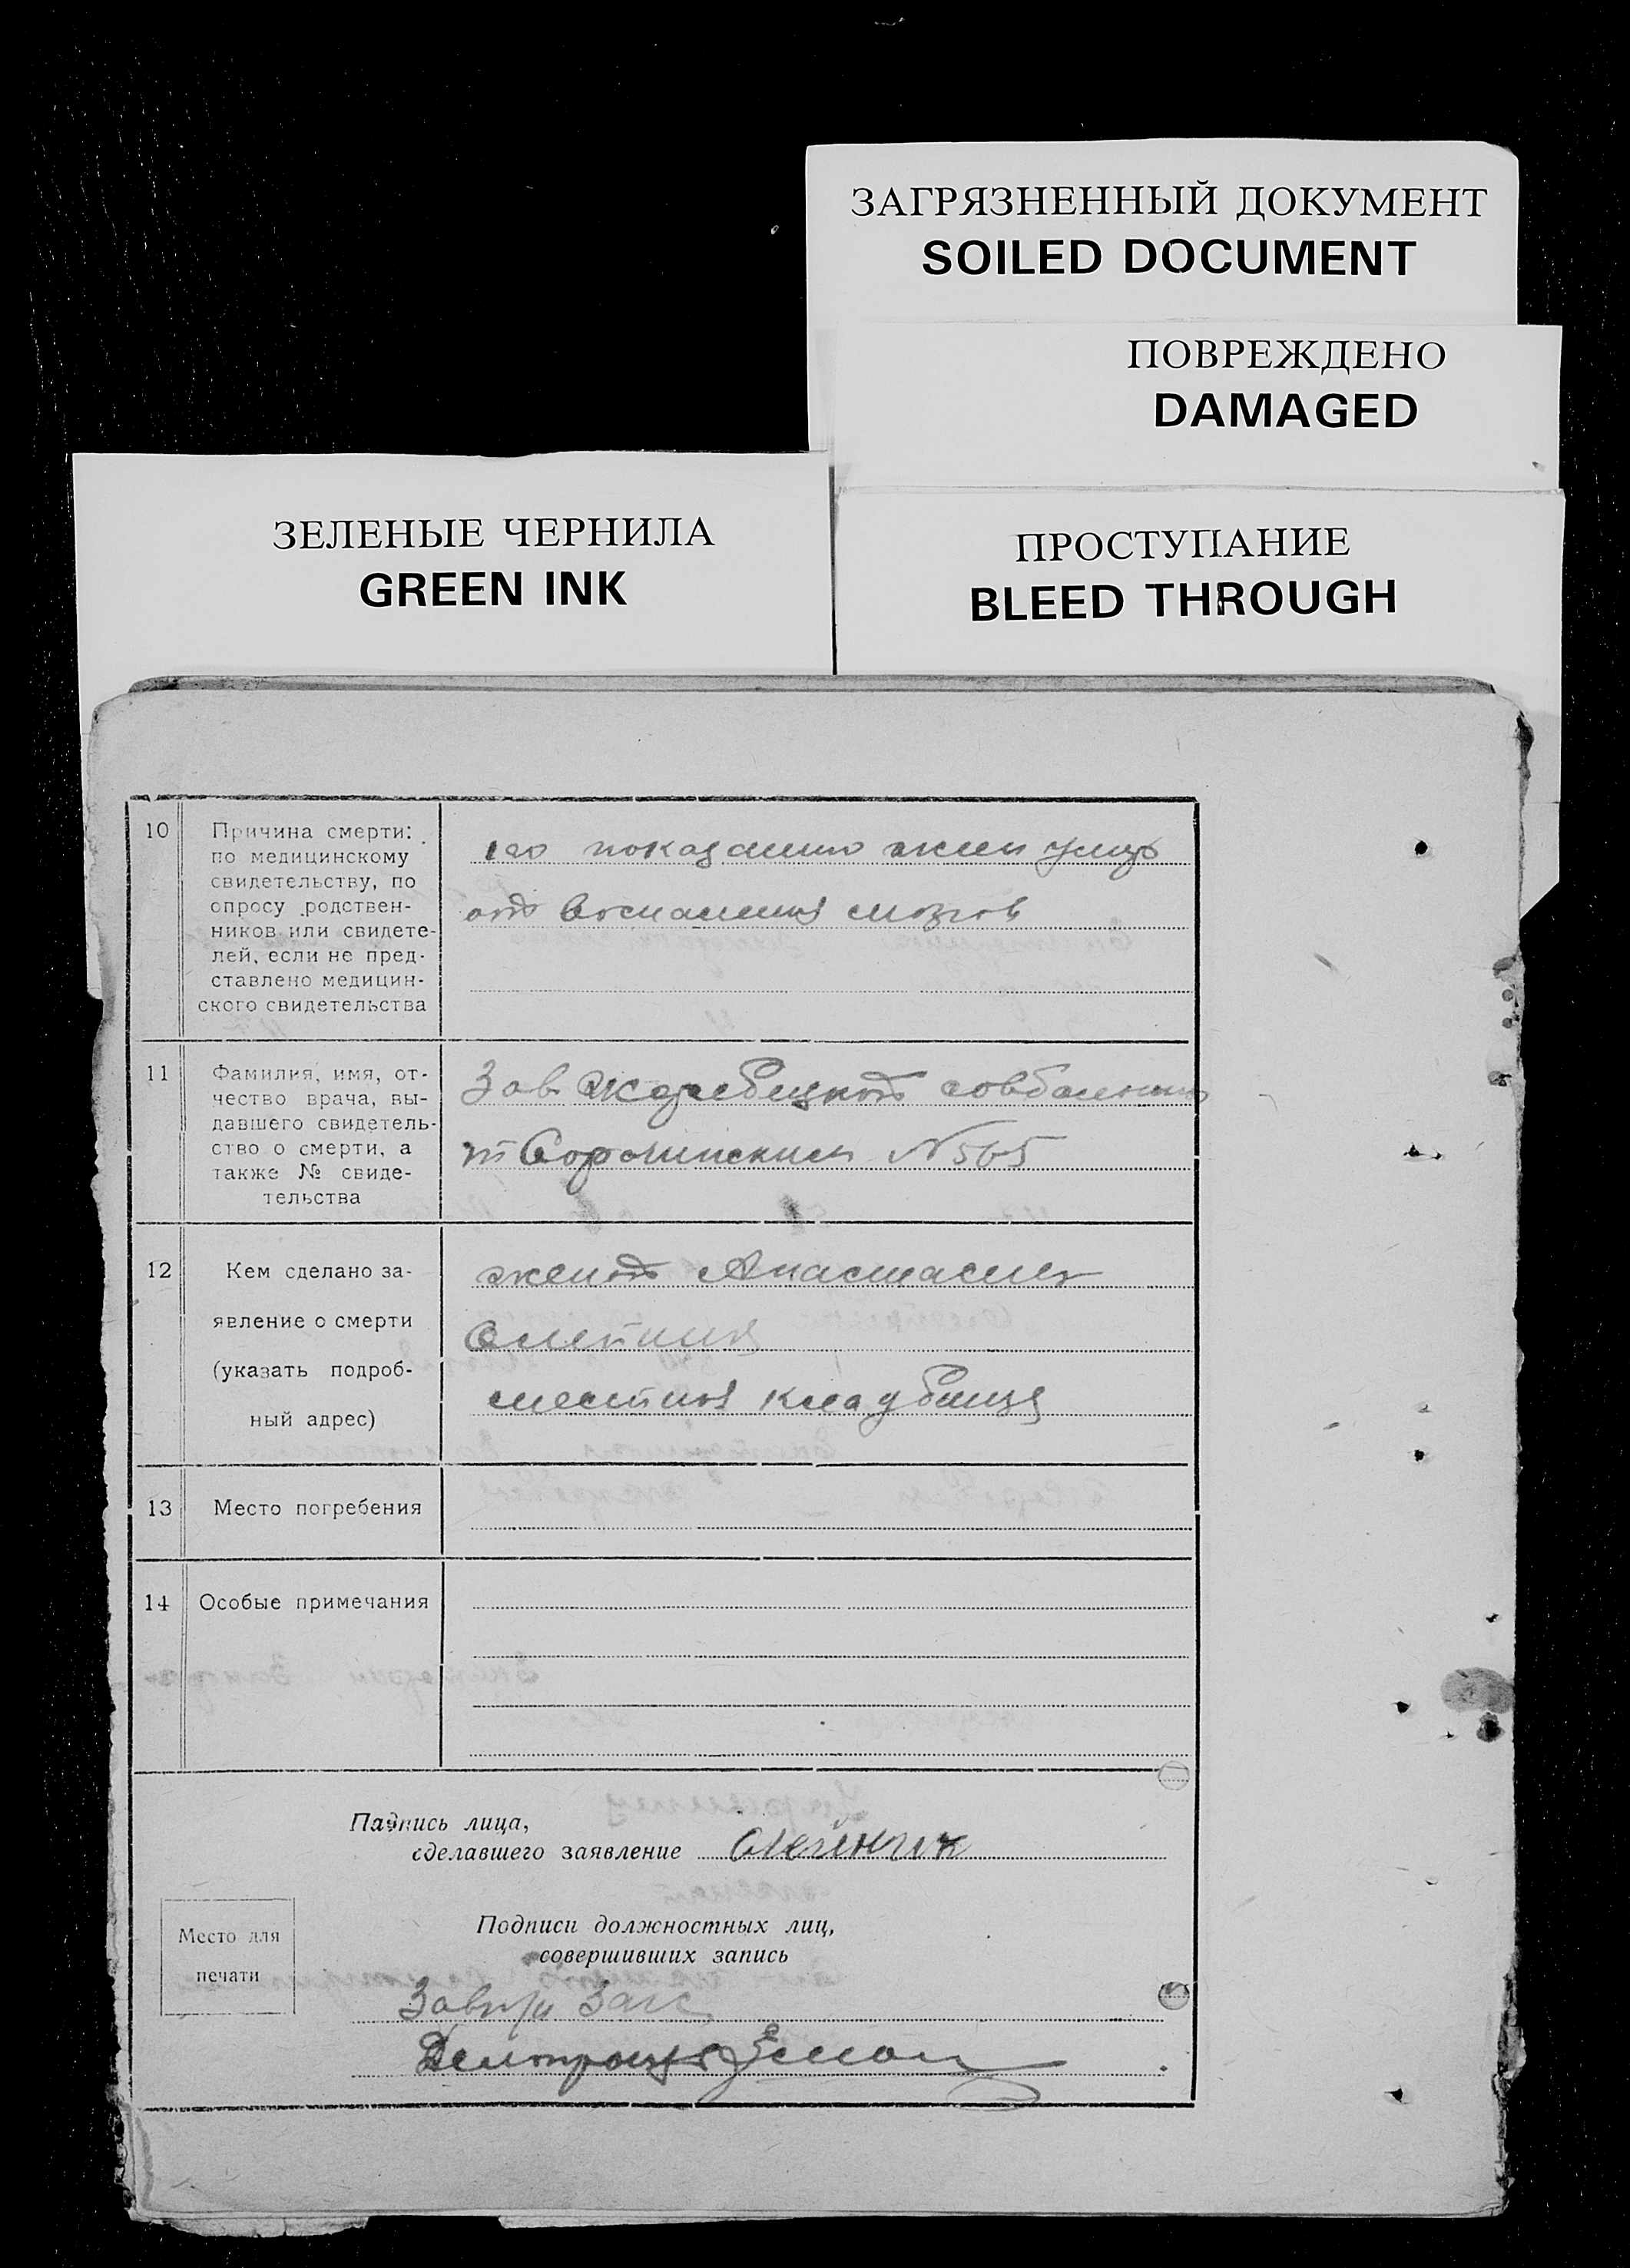 ЗАГРЯЗНЕННЫЙ ДОКУМЕНТ
SOILED DOCUMENT
ПОВРЕЖДЕНО
DAMAGED
ЗЕЛЕНЫЕ ЧЕРНИЛА
GREEN INK
ПРОСТУПАНИЕ
BLEED THROUGH
10
Причина смерти:
по медицинскому
свидетельству, по
опросу родствен-
ников или свидете-
лей, если не пред-
ставлено медицин-
ского свидетельства
по показанию жены умер
от воспаления мозгов
11
Фамилия, имя, от-
чество врача, вы-
давшего свидетель-
ство о смерти, а
также № свиде-
тельства
Зав
N 565
12
Кем сделано за-
явление о смерти
(указать подроб-
ный адрес)
женой Анастасией
Олейник
местное кладбище
13
Место погребения
14
Особые примечания
Подпись лица,
сделавшего заявление Олейник
Место для
печати
Подписи должностных лиц,
совершивших запись
Загс